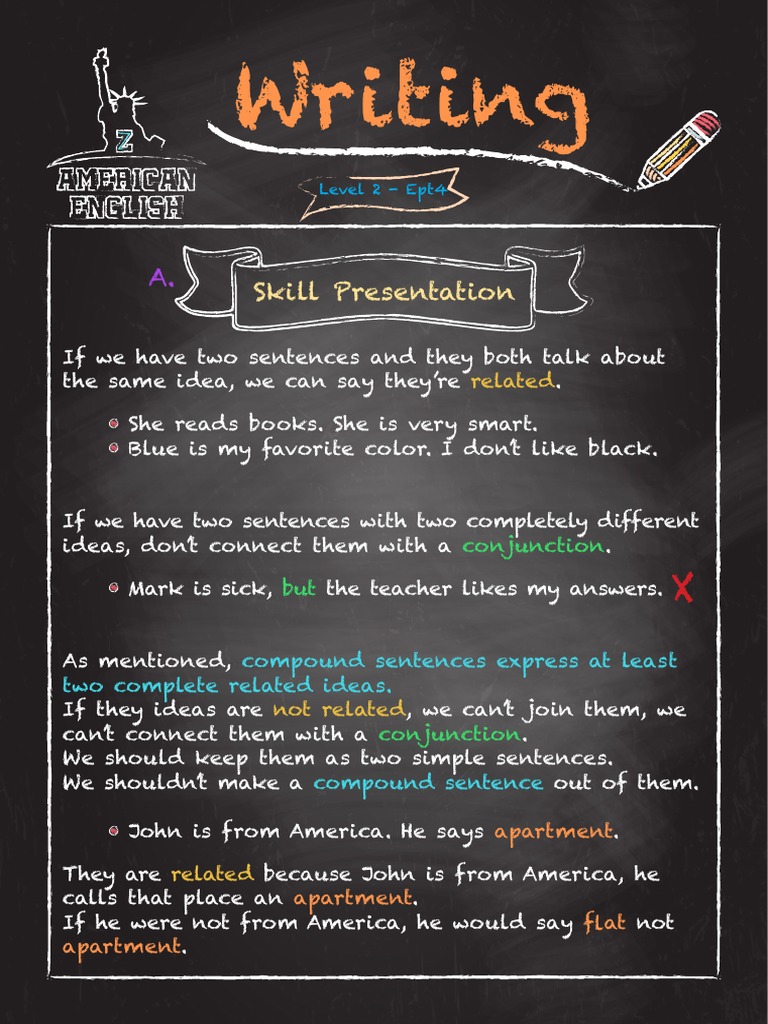 Writing
Z
AMERICAN
ENGLISH
Level 2 - Ept4
A.
Skill Presentation
If we have two sentences and they both talk about
the same idea, we can say they're related.
She reads books. She is very smart.
Blue is my favorite color. I don't like black.
If we have two sentences with two completely different
ideas, don't connect them with a conjunction.
Mark is sick, but the teacher likes my answers. X
As mentioned, compound sentences express at least
two complete related ideas.
If they ideas are not related, we can't join them, we
can't connect them with a conjunction.
We should keep them as two simple sentences.
We shouldn't make a compound sentence out of them.
John is from America. He says apartment.
They are related because John is from America, he
calls that place an apartment.
If he were not from America, he would say flat not
apartment.